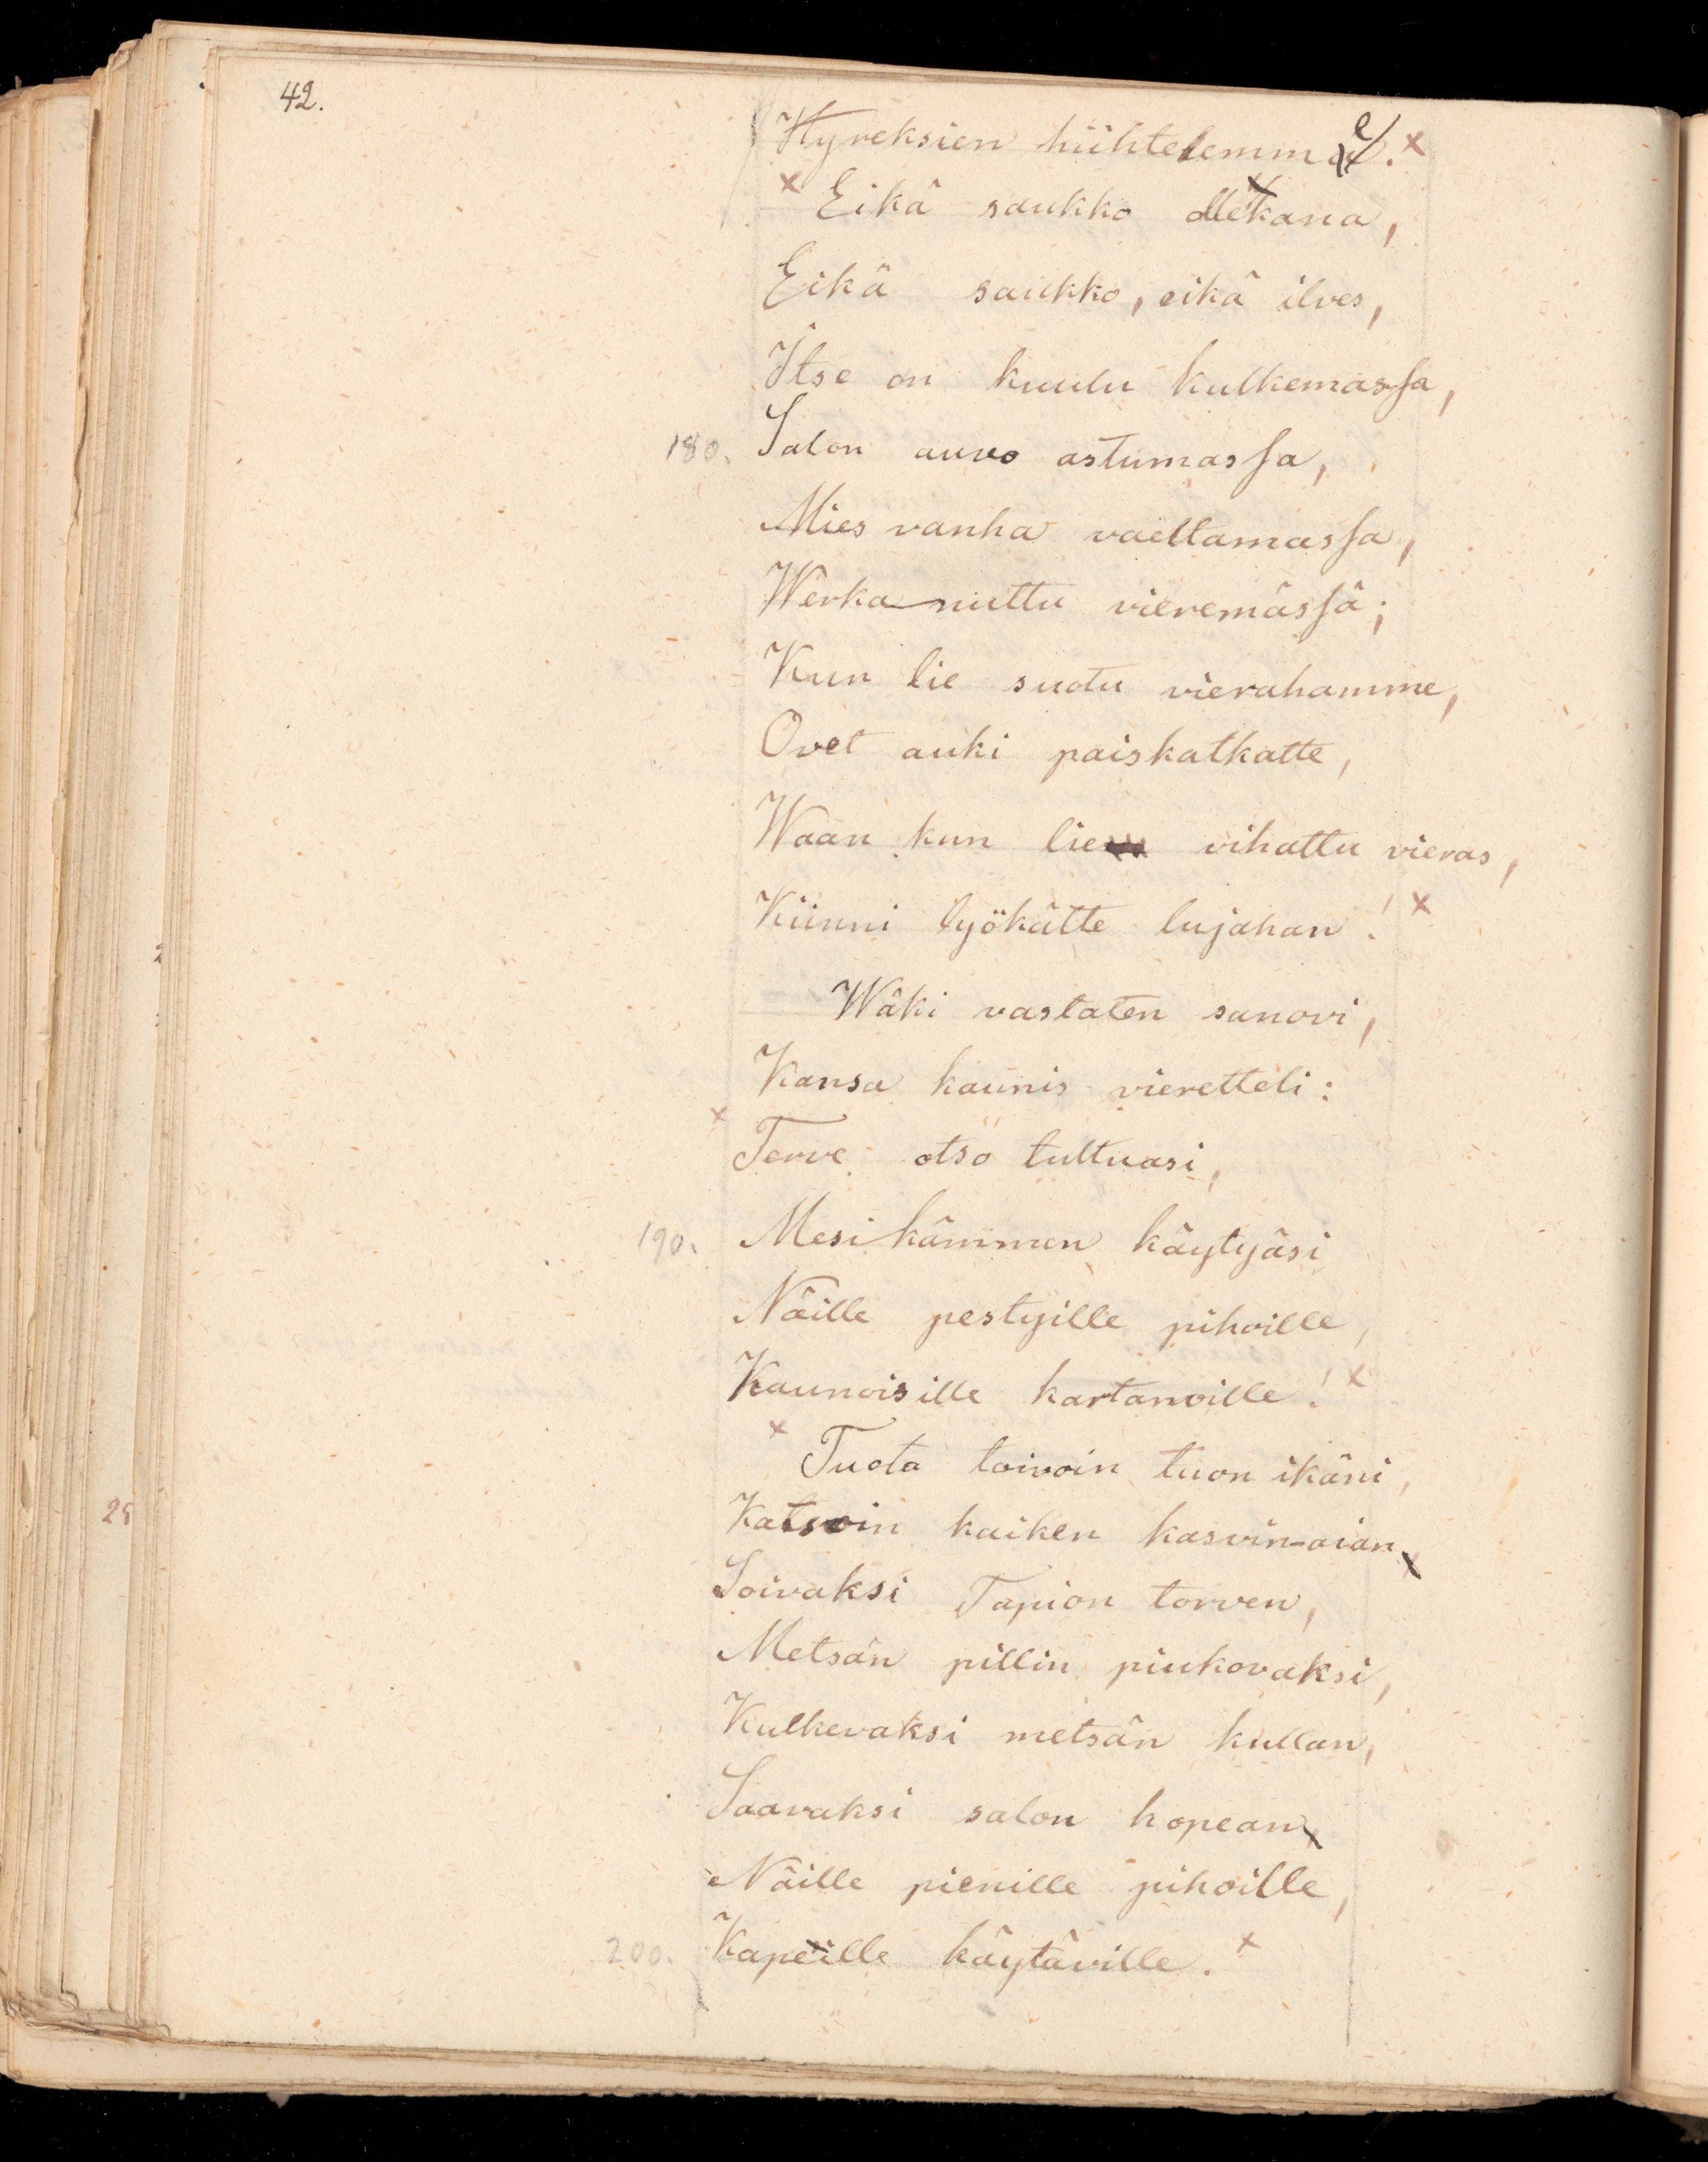 42.
Hyreksien hiihtelemme.
Eikä saukko ollekana,
Eikä saukko, eikä ilves,
Itse on kuulu kulkemassa,
180. Salon auvo astumassa,
Mies vanha vaeltamassa,
Werka-nuttu vieremässä;
Kun lie suotu vierahamme,
Ovet auki paiskatkatte,
Waan kun lie vihattu vieras,
Kiinni lyökätte lujahan!
Wäki vastaten sanovi,
Kansa kaunis vieretteli:
Terve otso tultuasi,
190. Mesikämmen käytyäsi
Näille pestyille pihoille,
Kaunoisille kartanoille!
Tuota toivoin tuon ikäni,
Katsoin kaiken kasvin-aian
Soivaksi Tapion torven,
Metsän pillin piukovaksi,
Kulkevaksi metsän kullan,
Saavaksi salon hopean
Näille pienille pihoille,
200. Kapeille käytäville.